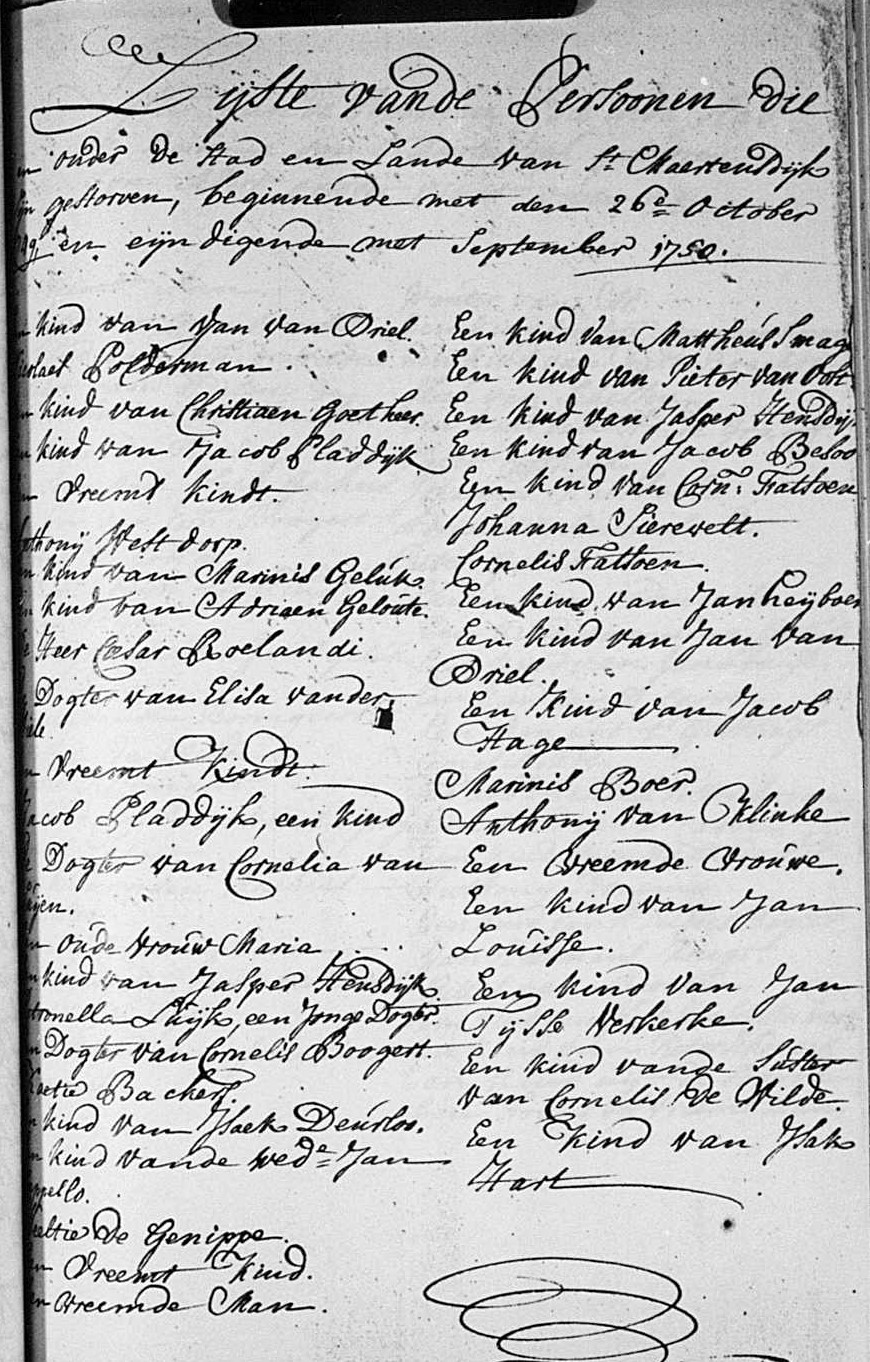 Lijste vande Persoonen die
onder de Stad en Lande van St. Maertensdijk
gestorven, beginnende met den 26e October
en eijndigende met September 1750.
kind van Jan van Driel.
Polderman.
kind van Christiaen Goetheer.
kind van Jacob Pladdijk
Vreemt kindt.
Westdorp.
kind van Marinis Geluk.
kind van Adriaen Geloute.
Heer Cæsar Roelandi.
Dogter van Elisa vander
Vreemt Kindt.
Jacob Pladdijk, een kind
Dogter van Cornelia van
oude vrouw Maria
kind van Jasper Hensdijk.
Luijk, een Jonge Dogter.
Dogter van Cornelis Boogert.
Backers.
kind van Isaek Deurloo.
kind vande wede Jan
De Genippe.
Vreemt Kind.
vreemde Man.
Een kind van Mattheus Smag
Een kind van Pieter van
Een kind van Jasper Hensdij
Een kind van Jacob Beloo
Een kind van Corns. Fattoen
Johanna Sierevelt.
Cornelis Fattoen.
Een kind van Jan Heijboer
Een kind van Jan van
Driel.
Een Kind van Jacob
Hage
Marinis Boer.
Anthonij van Klinke
Een vreemde vrouwe.
Een kind van Jan
Louisse.
Een kind van Jan
Tijsse Verkerke.
Een kind vande Suster
van Cornelis De Wilde.
Een kind van Isak
Hart